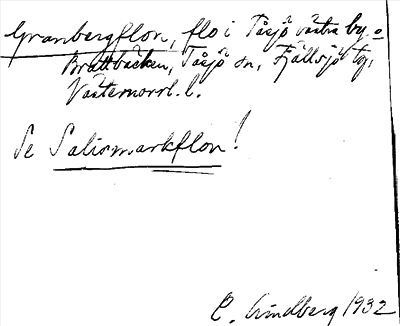 Granbergflon, flo i Tåsjö västra by o
Brattbäcken, Tåsjö sn, Fjällsjö tg,
Västernorrl. l.
Se Salismarkflon!
C. Lindberg 1932